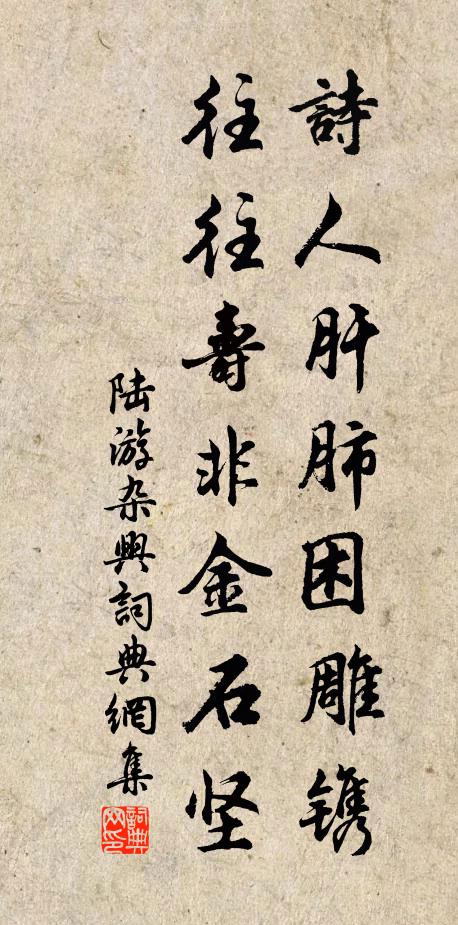 詩人肝肺困雕镌
往往壽非金石坚
陆游杂興詞典網集
詞典網印